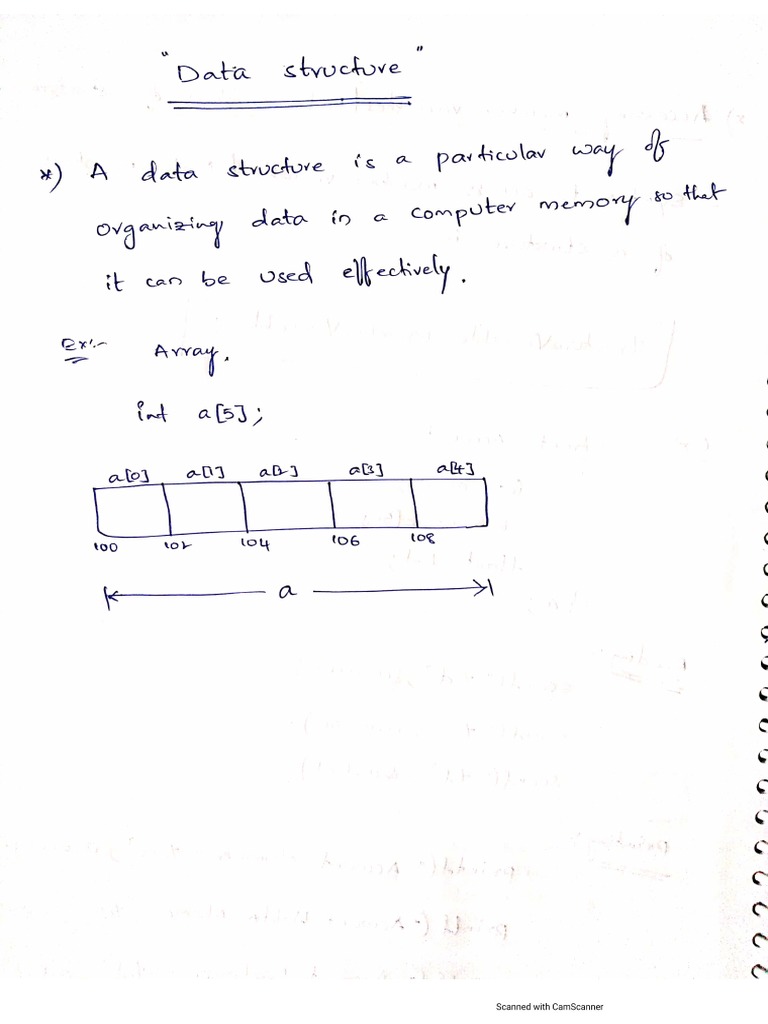 "Data structure"
*) A data structure is a particular way of
organizing data in a computer memory so that
it can be used effectively.
Ex:- Array.
int a[5];
a[0] a[1] a[2] a[3] a[4]
100 102 104 106 108
a
Scanned with CamScanner